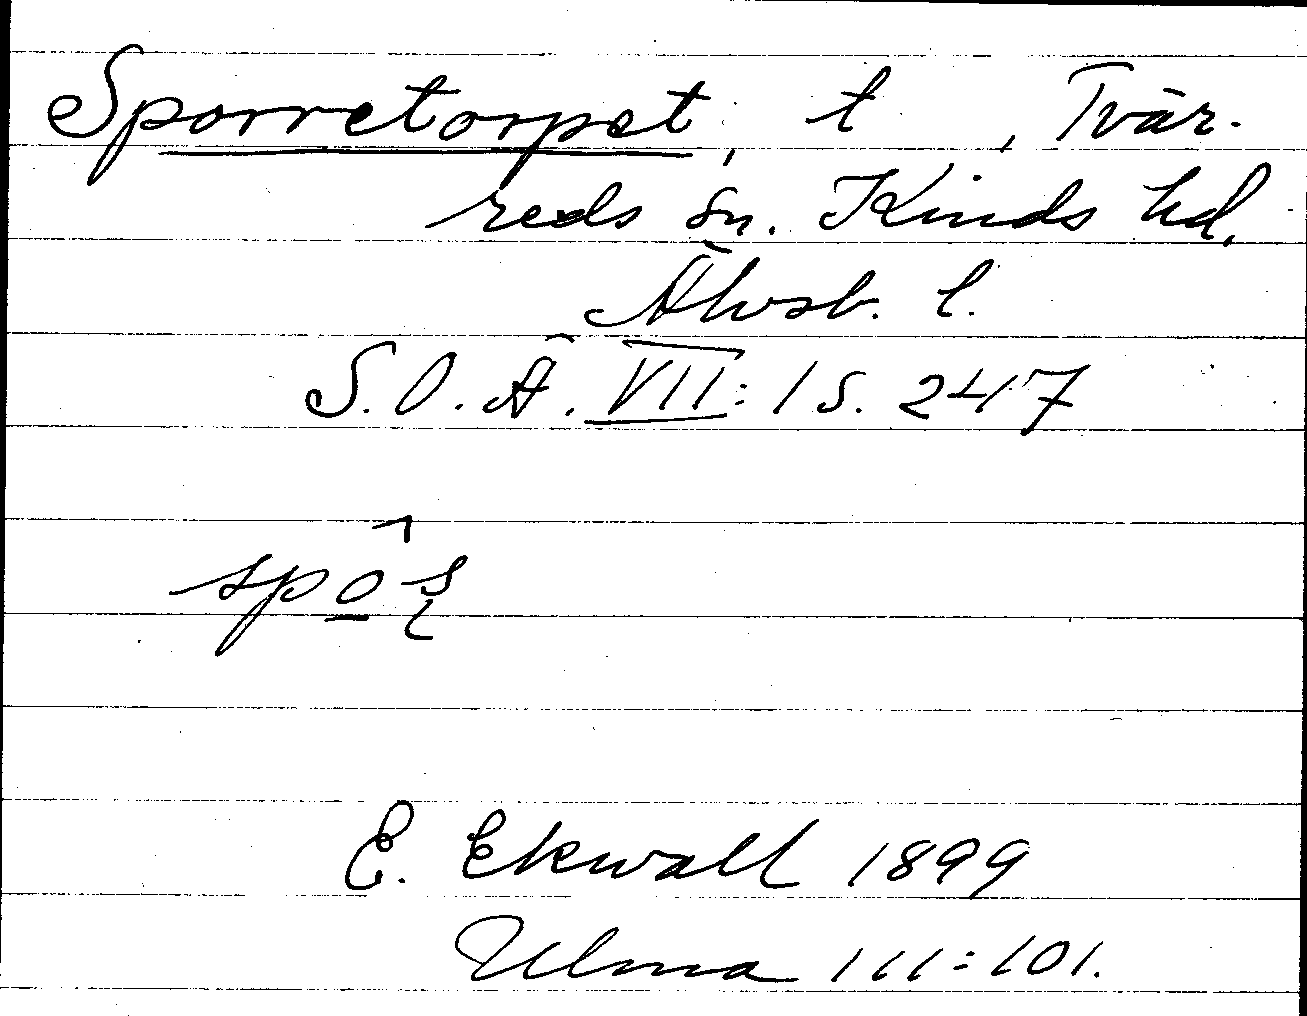 Sporretorpet, t , Tvär-
reds sn. Kinds hd,
Älvsb. l.
S.O.Ä. VII:1 S. 247
E. Ekwall 1899
Ulma 111:101.